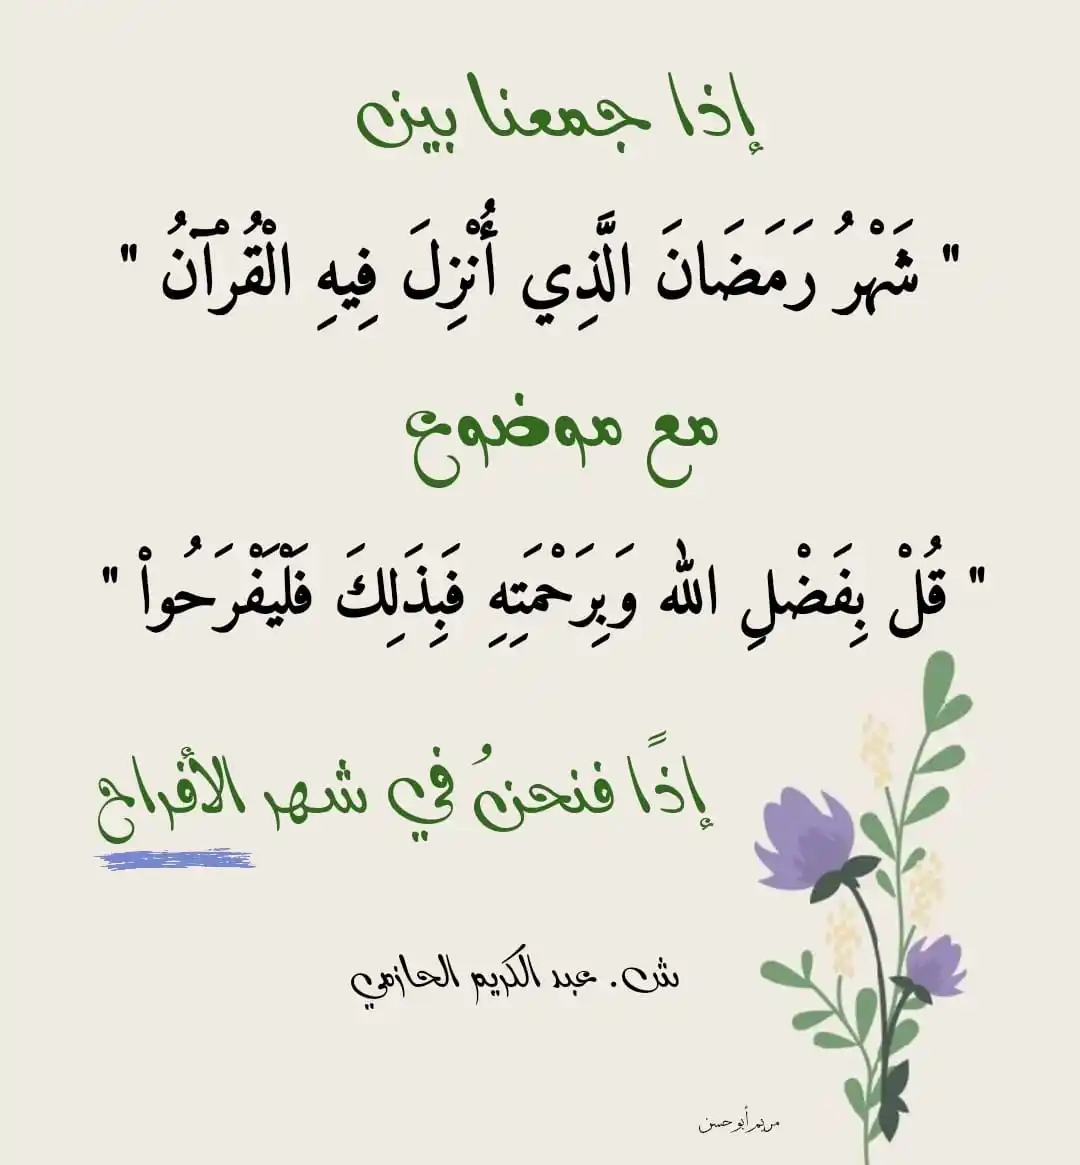 إذا جمعنا بين
" شَهْرُ رَمَضَانَ الَّذِي أُنْزِلَ فِيهِ الْقُرْآنُ "
مع موضوع
" قُلْ بِفَضْلِ الله وَبِرَحْمَتِهِ فَبِذَلِكَ فَلْيَفْرَحُواْ "
إذًا فنحنُ في شهر الأفراح
ش. عبد الكريم الحازمي
مريم أبو حسن